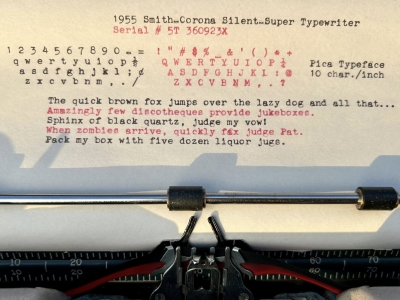 1955 Smith-Corona Silent-Super Typewriter
Serial # 5T 360923X
1 2 3 4 5 6 7 8 9 0 - = ! " # $ % _ & ' ( ) * +
q w e r t y u i o p ½ Q W E R T Y U I O P ¼ Pica Typeface
a s d f g h j k l ; ¢ A S D F G H J K L : @ 10 char./inch
z x c v b n m , . / Z X C V B N M , . ?
The quick brown fox jumps over the lazy dog and all that...
Amazingly few discotheques provide jukeboxes.
Sphinx of black quartz, judge my vow!
When zombies arrive, quickly fax judge Pat.
Pack my box with five dozen liquor jugs.
10 20 60 70